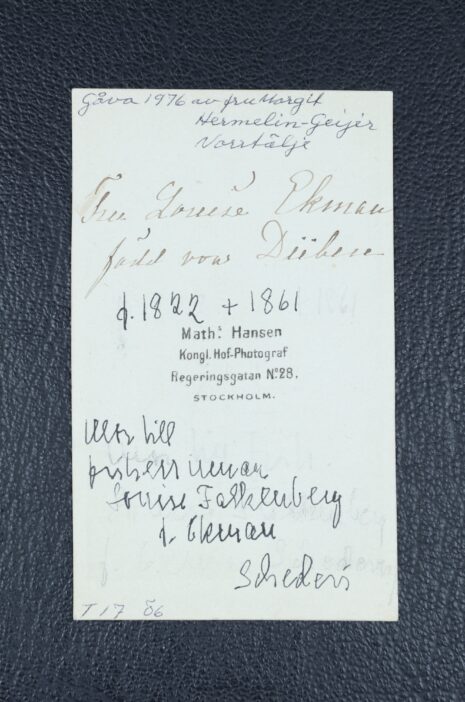 Gåva 1976 av fru Margit
Hermelin-Geijer
Norrtälje
Fru Louise Ekman
född von Düben
f. 1822 + 1861
Maths. Hansen
Kongl. Hof-Photograf
Regeringsgatan No. 28.
STOCKHOLM.
Mor till
friherrinnan
Louise Falkenberg
f. Ekman
T 17 Ö6